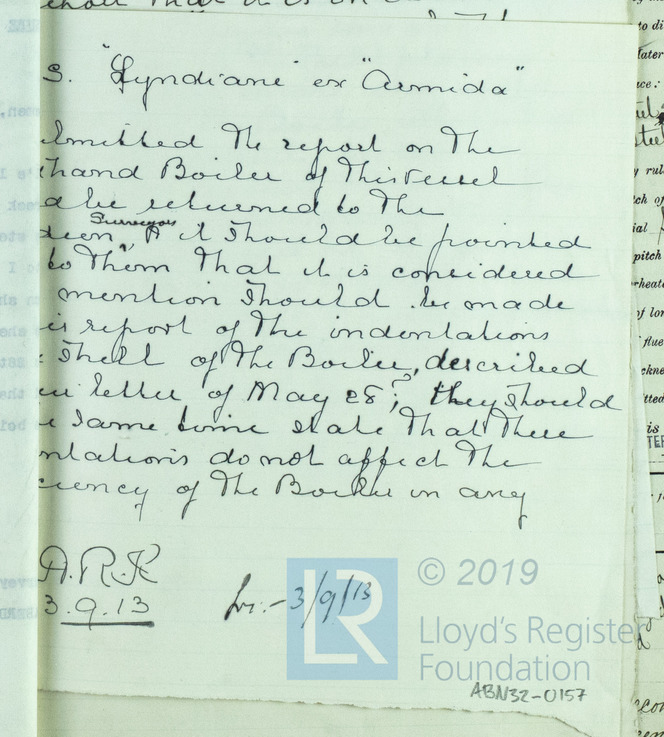 S. "Lyndiane" ex "Armida"
bmitted the report on the
hand Boiler of this vessel
d be returned to the
Surveyors
it should be pointed
to them that it is considered
mention should be made
is report of the indentations
Shell of the Boiler, described
letter of May 28; they should
same time state that these
ntations do not affect the
ciency of the Boiler in any
A.R.K
3.9.13
3/9/13
LR
© 2019
Lloyd's Register
Foundation
ABN32-0157